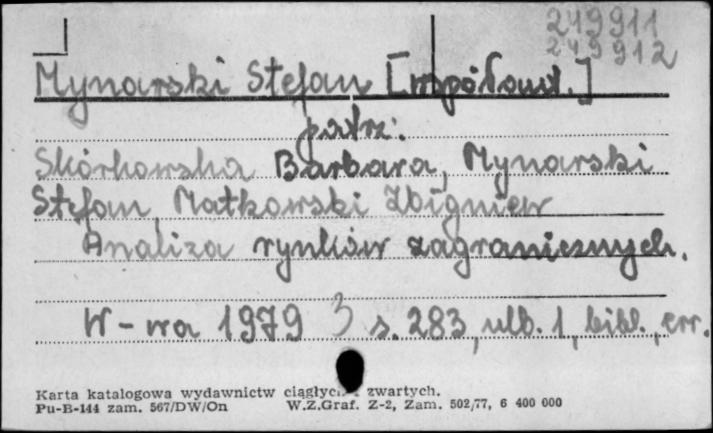 249911
249912
Mynarski Stefan [współaut.]
patrz:
Skórkowska Barbara, Mynarski
Stefan, Matkowski Zbigniew
Analiza rynków zagranicznych.
W-wa 1979 3 s. 283, ulb. 1, bibl., err.
Karta katalogowa wydawnictw ciągłych i zwartych.
Pu-B-144 zam. 567/DW/On W.Z.Graf. Z-2, Zam. 502/77, 6 400 000